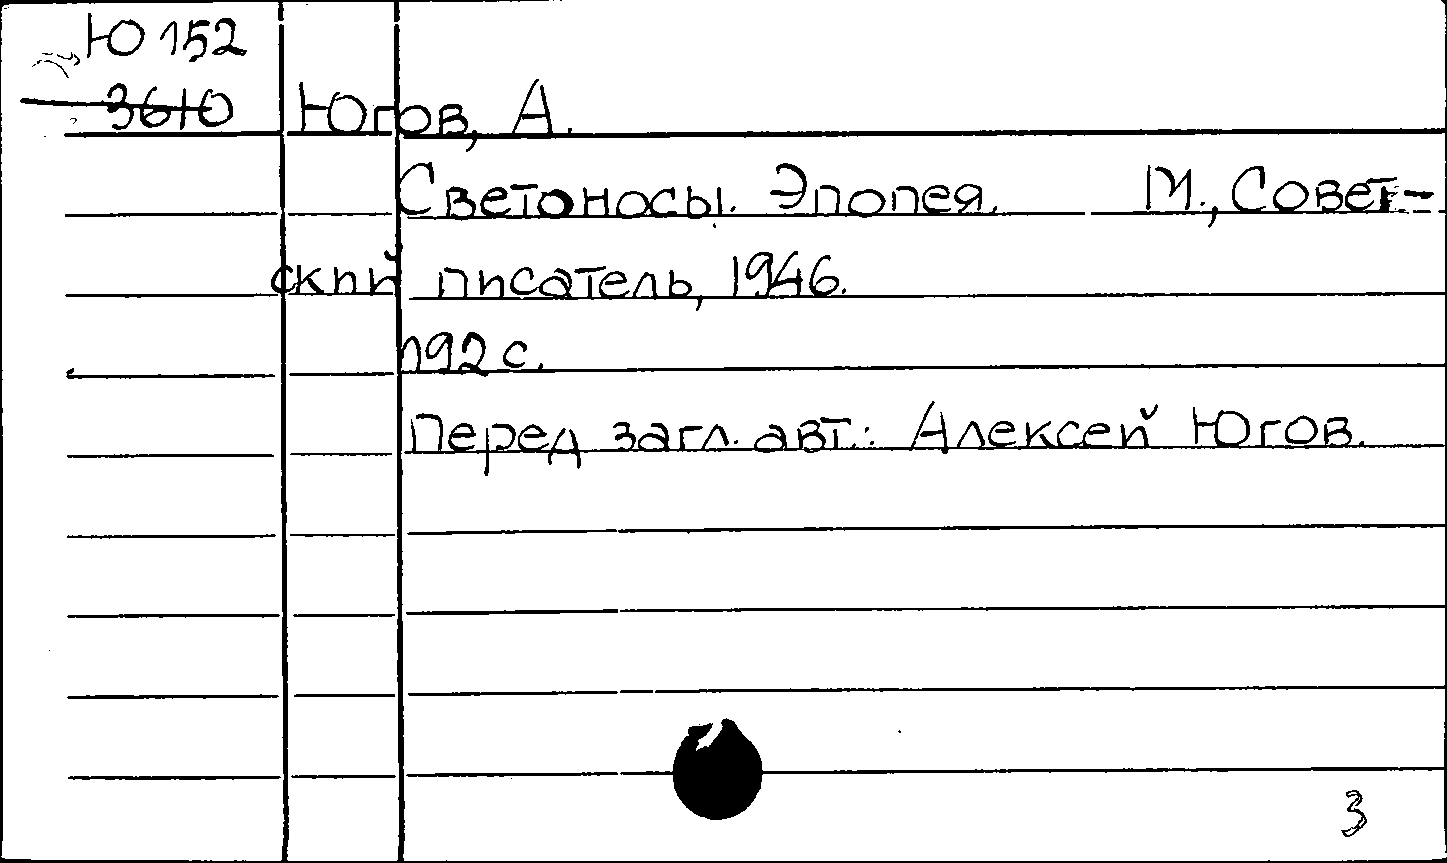 Ю 152
36Ю Югов, А.
Светоносы. Эпопея. М., Совет-
ский писатель, 1946.
192 с.
Перед загл. авт.: Алексей Югов.
3